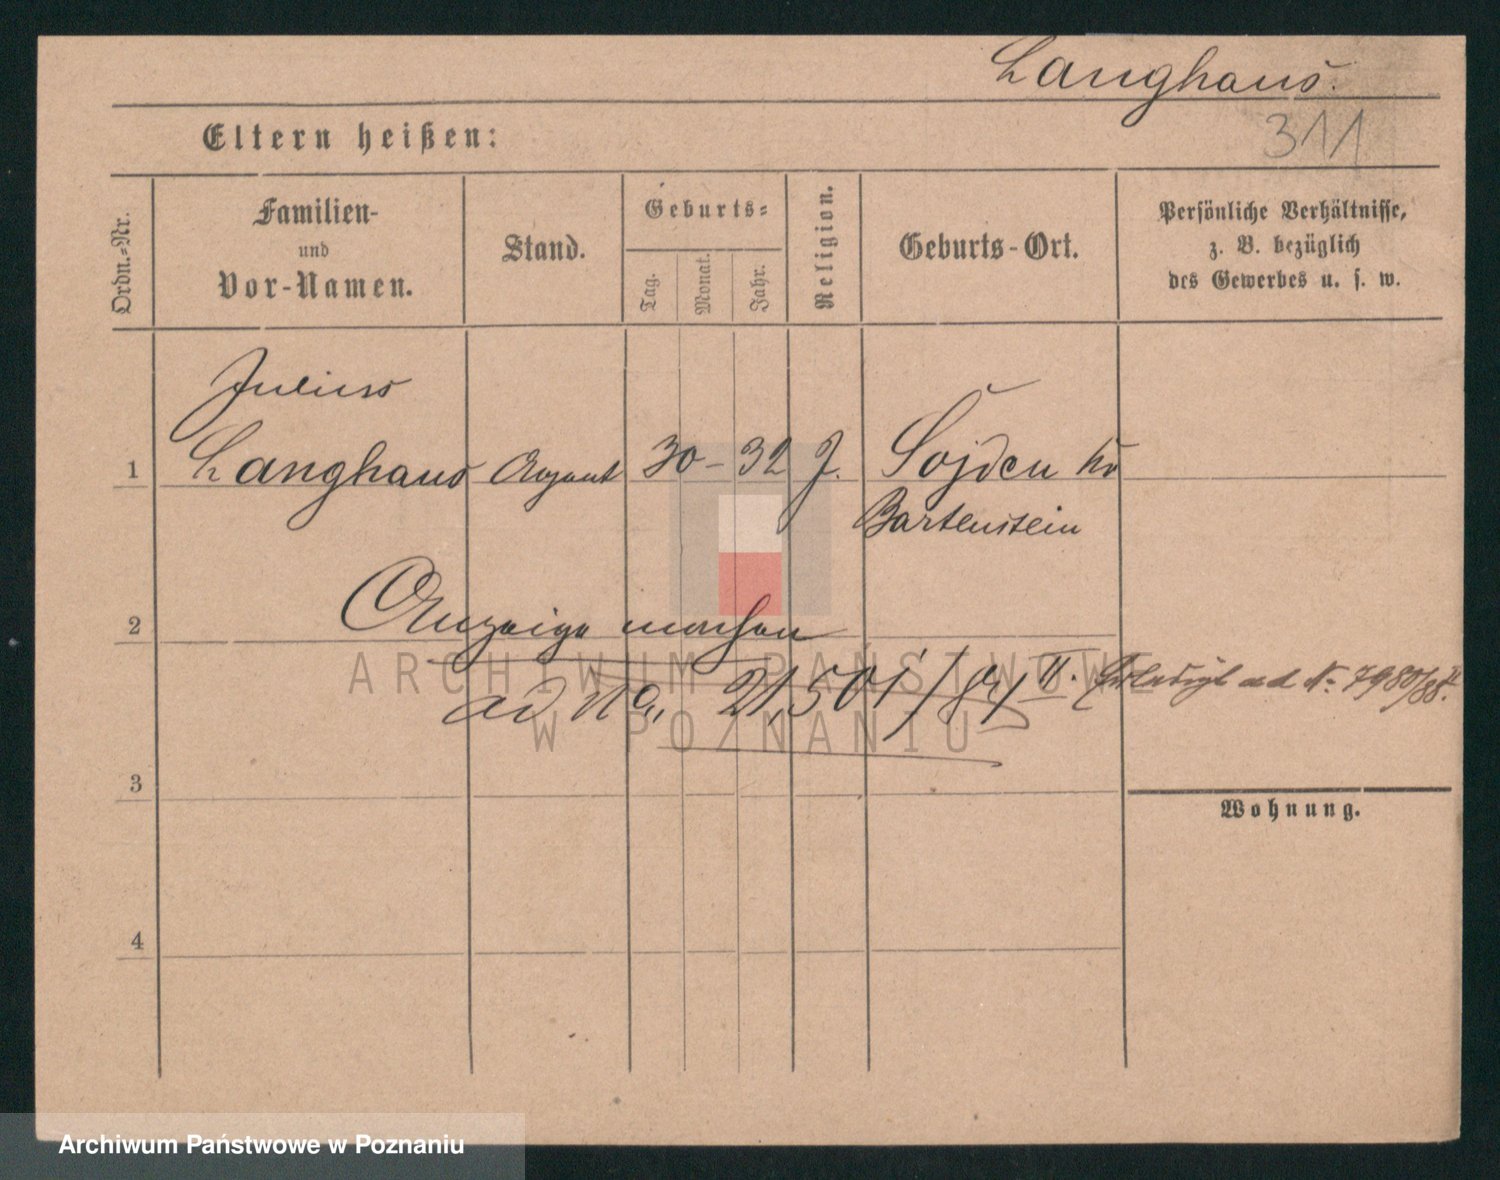 Langhaus.
311
Eltern heißen:
Ordn.-Nr.
Familien-
und
Vor-Namen.
Stand.
Geburts-
Tag.
Monat.
Jahr.
Religion.
Geburts-Ort.
Persönliche Verhältnisse,
z. B. bezüglich
des Gewerbes u. s. w.
Julius
1 Langhaus Agent 30 – 32 J. Sojden Kr
Bartenstein
2 Anzeige machen
ad No. 21,501/84 II. Erledigt ad No 7980/88 II.
3
Wohnung.
4
ARCHIWUM PAŃSTWOWE
W POZNANIU
Archiwum Państwowe w Poznaniu